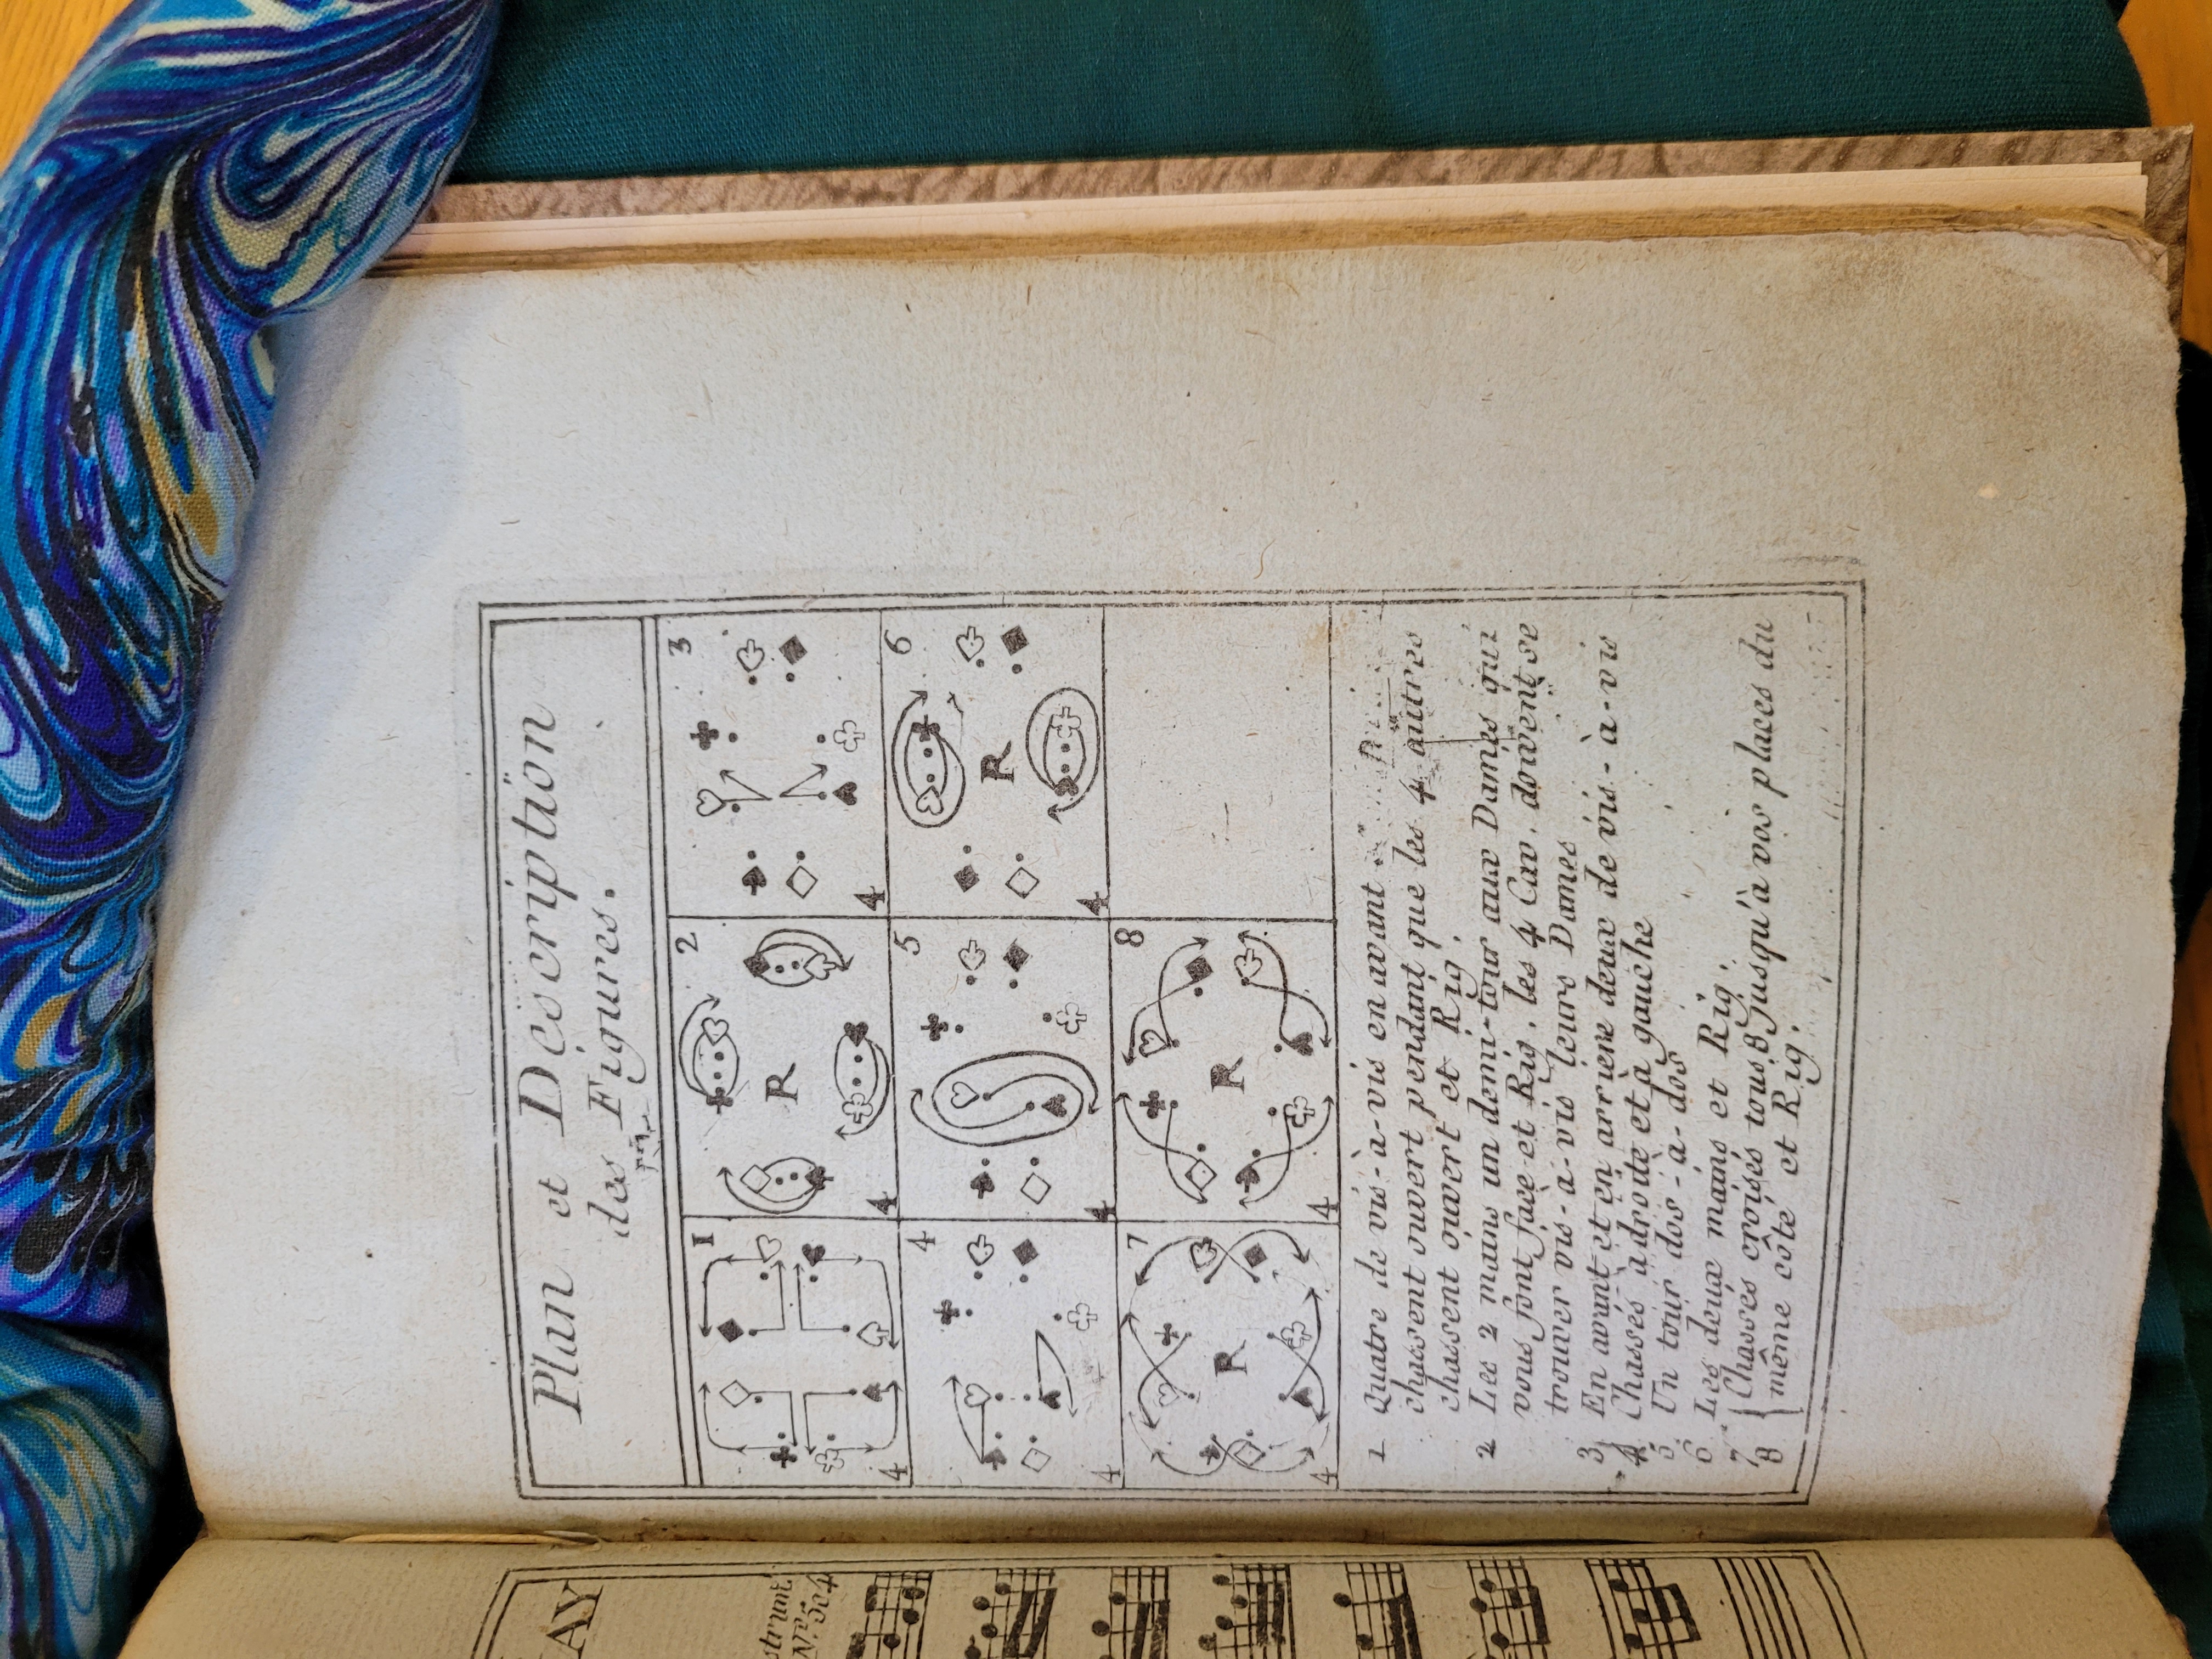 Plan et Description
des Figures.
1
2
3
4
R
4
4
4
5
6
4
4
R
4
7
8
R
4
R
4
1 Quatre de vis-à-vis en avant
chassent ouvert pendant que les 4 autres
chassent ouvert et Rig.
2 Les 2 mains un demi-tour aux Dames qui
vous font face et Rig. les 4 Cav. doivent se
trouver vis-à-vis leurs Dames
3 En avant et en arriere deux de vis-à-vis
4 Chassés à droite et à gauche
5 Un tour dos-à-dos
6 Les deux mains et Rig.
7 { Chassés croisés tous 8 jusqu'à vos places du
8 { même côté et Rig.
AY